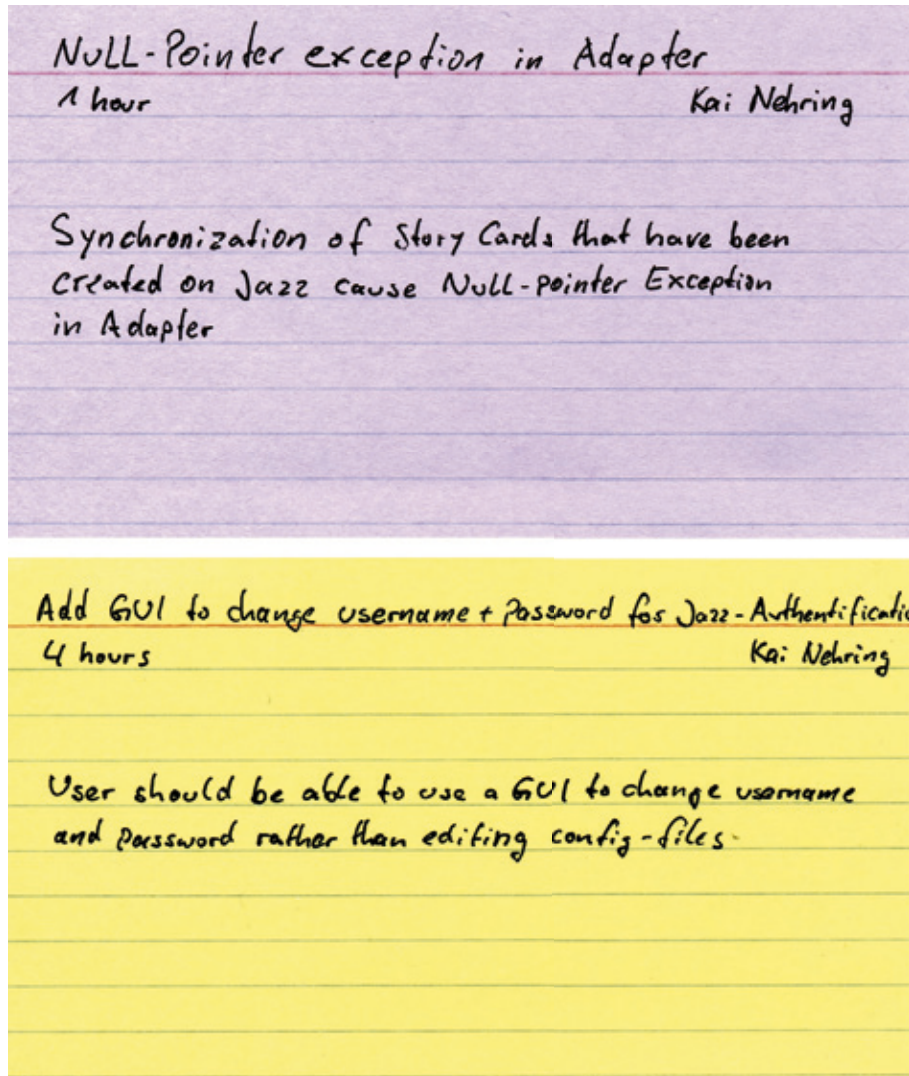 Null-Pointer exception in Adapter
1 hour Kai Nehring
Synchronization of Story Cards that have been
created on Jazz cause Null-pointer Exception
in Adapter
Add GUI to change username + Password for Jazz-Authentificatio
4 hours Kai Nehring
User should be able to use a GUI to change username
and Password rather than editing config-files.